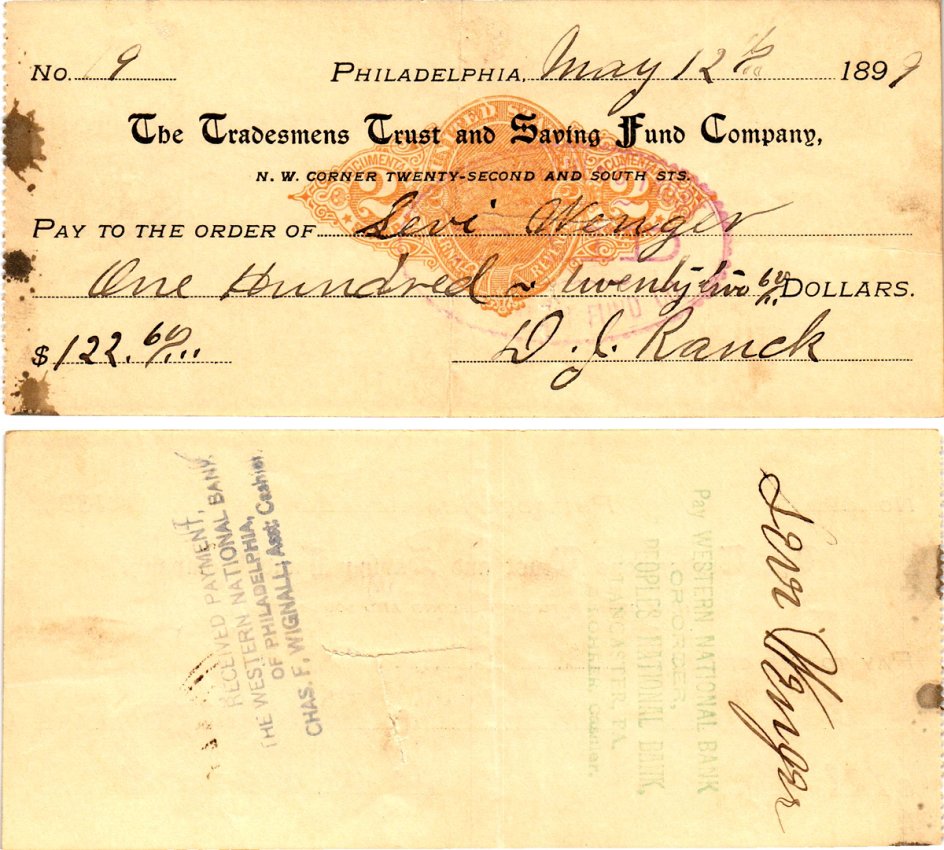 No. 19 Philadelphia, May 12th 1899
The Tradesmens Trust and Saving Fund Company,
N. W. CORNER TWENTY-SECOND AND SOUTH STS.
UNITED
DOCUMENTARY 2 2 DOCUMENTARY
PAY TO THE ORDER OF Levi Wenger
One Hundred ~ twenty two 60/.. DOLLARS.
FUND
$ 122. 60/...
D. J. Ranck
RECEIVED PAYMENT,
THE WESTERN NATIONAL BANK
OF PHILADELPHIA,
CHAS. F. WIGNALL, Asst. Cashier.
Levi Wenger
Pay WESTERN NATIONAL BANK
OR ORDER,
PEOPLES NATIONAL BANK,
LANCASTER, PA.
Cashier.